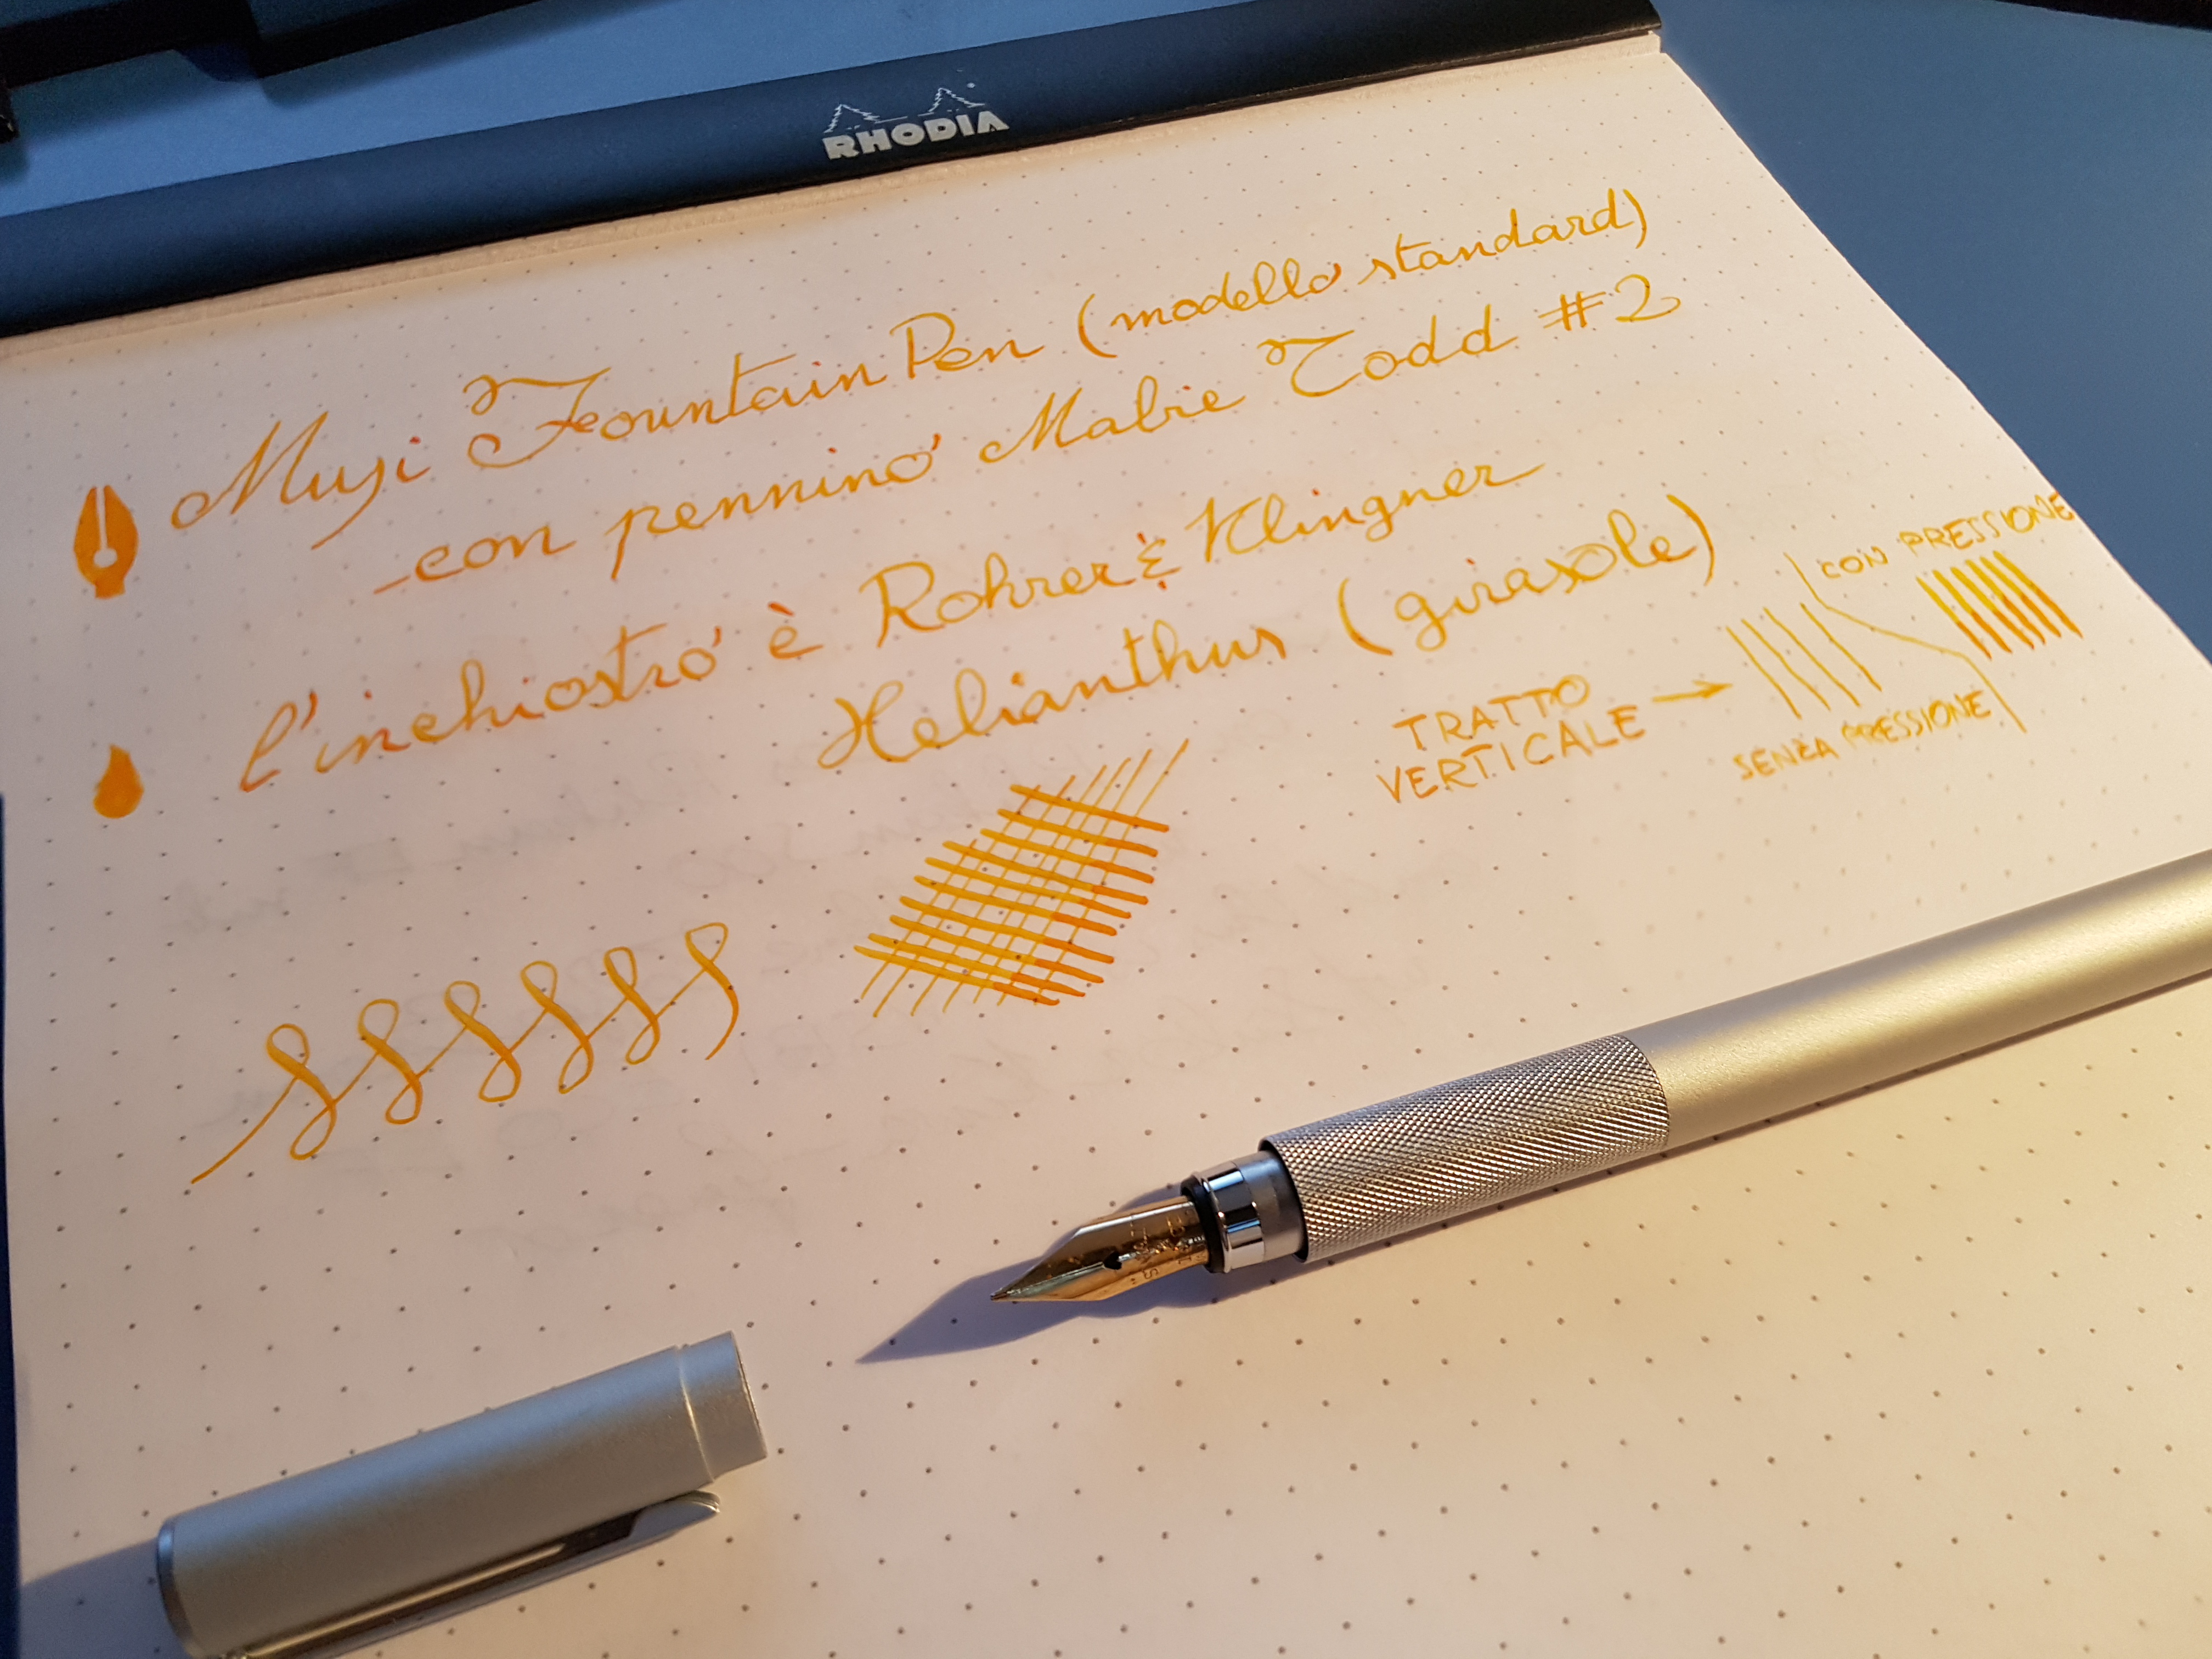 RHODIA
Muji Fountain Pen (modello standard)
con pennino Mabie Todd #2
l'inchiostro è Rohrer & Klingner
Helianthus (girasole)
CON PRESSIONE
TRATTO
VERTICALE →
SENZA PRESSIONE